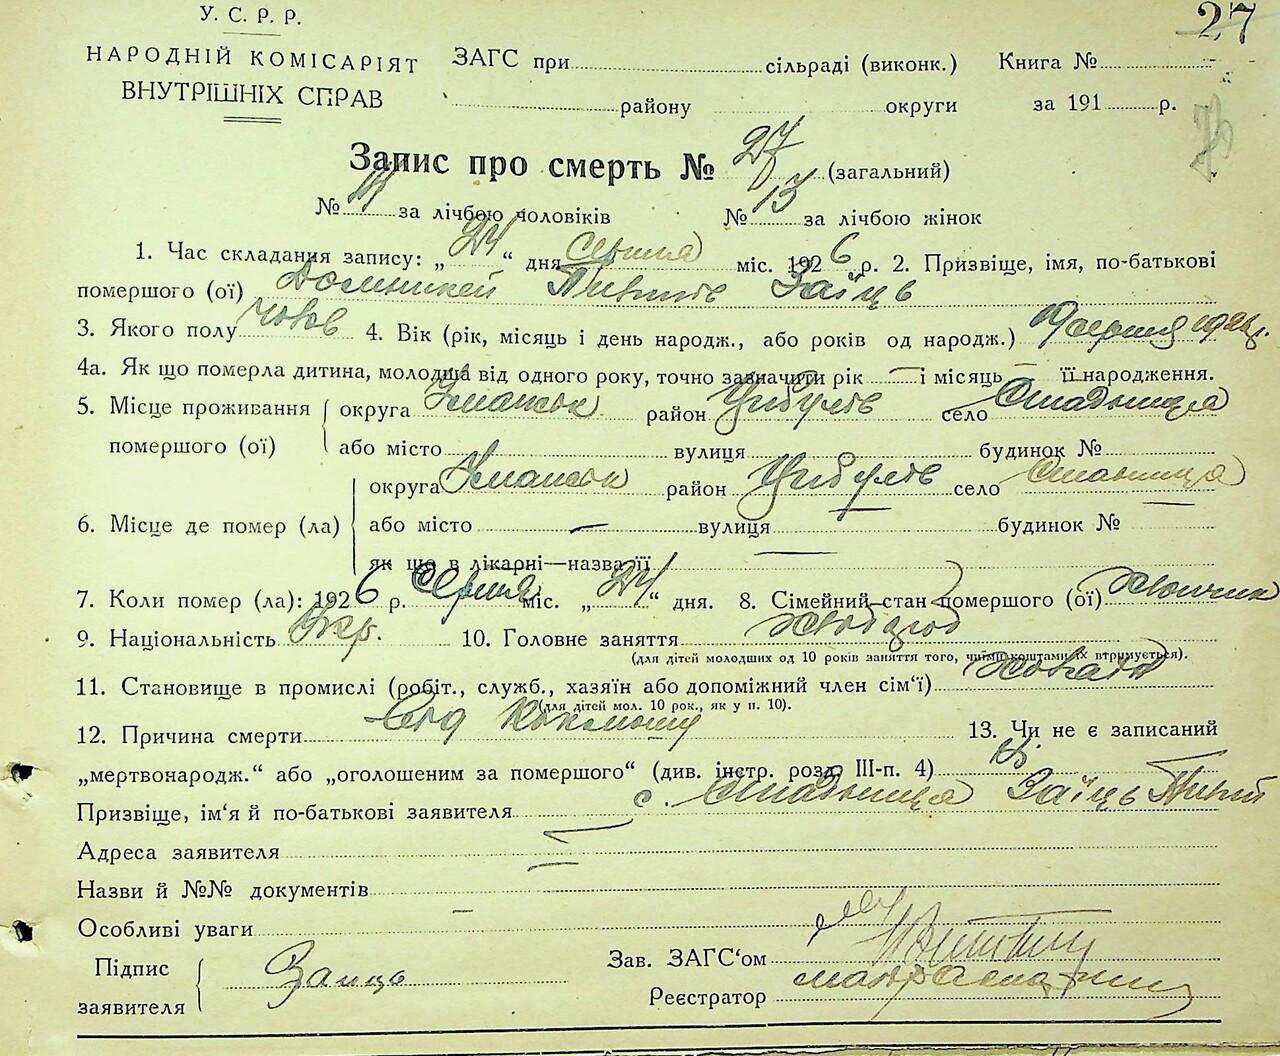 У. С. Р. Р.
27
НАРОДНІЙ КОМІСАРІЯТ
ВНУТРІШНІХ СПРАВ
ЗАГС при сільраді (виконк.) Книга №
району округи за 191 р.
Запис про смерть № 27 (загальний)
№ 14 за лічбою чоловіків № 13 за лічбою жінок
1. Час складання запису: „24“ дня Серпня міс. 1926 р. 2. Призвіще, імя, по-батькові
помершого (ої) Заїць
3. Якого полу чолов 4. Вік (рік, місяць і день народж., або років од народж.) Серпня 1926 р.
4а. Як що померла дитина, молодша від одного року, точно зазначити рік — і місяць — її народження.
5. Місце проживання помершого (ої) округа Уманськ район Цибулів село Стадниця
або місто вулиця будинок №
6. Місце де помер (ла) округа Уманськ район Цибулів село Стадниця
або місто — вулиця — будинок №
як що в лікарні—назва її
7. Коли помер (ла): 1926 р. Серпня міс. „24“ дня. 8. Сімейний стан помершого (ої)
9. Національність Укр. 10. Головне заняття Хлібороб
(для дітей молодших од 10 років заняття того, чиїми коштами їх втримується).
11. Становище в промислі (робіт., служб., хазяїн або допоміжний член сім‘ї)
(для дітей мол. 10 рок., як у п. 10).
12. Причина смерти Від Коклюшу 13. Чи не є записаний
„мертвонародж.“ або „оголошеним за помершого“ (див. інстр. розд. III-п. 4) Ні
Призвіще, ім‘я й по-батькові заявителя с. Стадниця Заїць
Адреса заявителя —
Назви й №№ документів
Особливі уваги —
Підпис заявителя Заиць
Зав. ЗАГС‘ом
Реєстратор